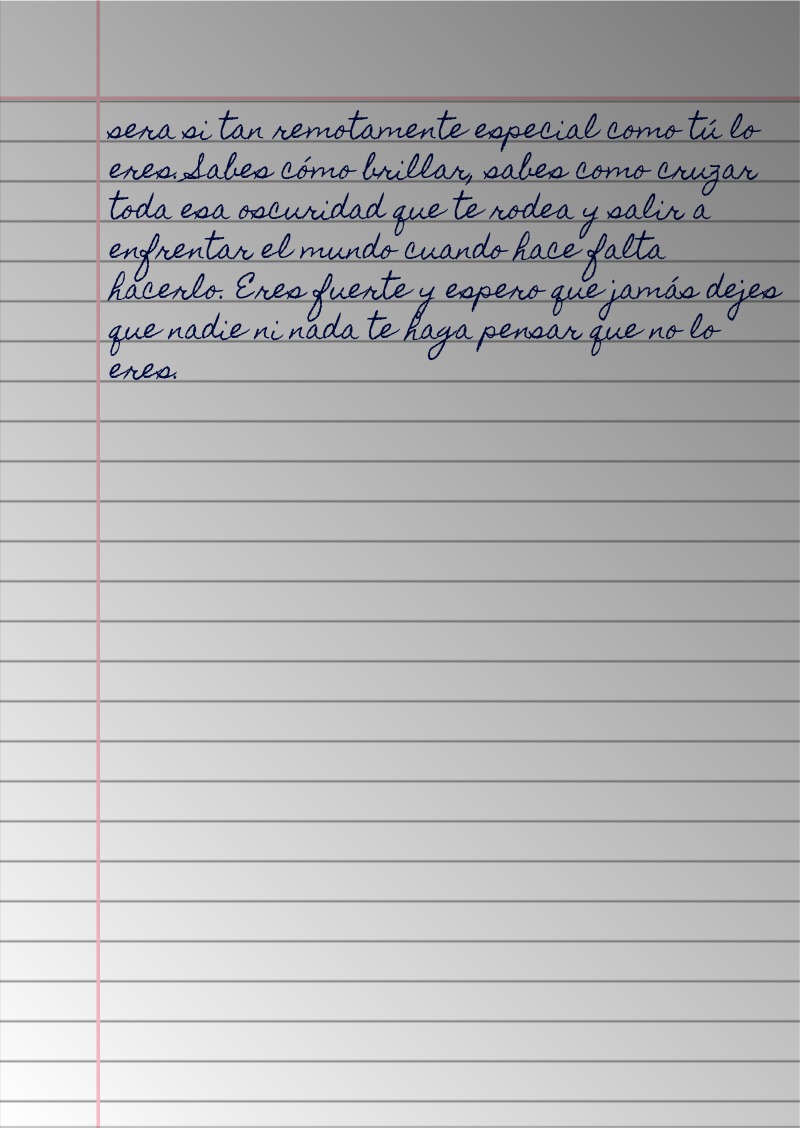 sera si tan remotamente especial como tú lo
eres. Sabes cómo brillar, sabes como cruzar
toda esa oscuridad que te rodea y salir a
enfrentar el mundo cuando hace falta
hacerlo. Eres fuerte y espero que jamás dejes
que nadie ni nada te haga pensar que no lo
eres.